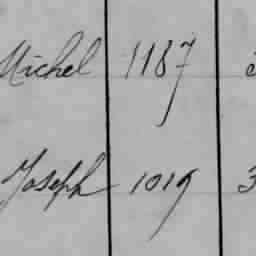 Michel 1187
Joseph 1019 3